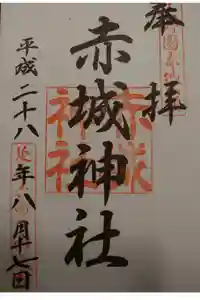 奉拝
赤城神社
平成二十八年八月十七日